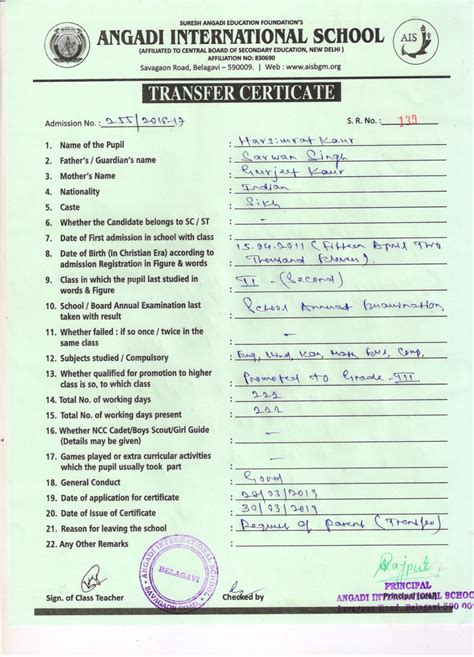 SURESH ANGADI EDUCATION FOUNDATION'S
ANGADI INTERNATIONAL SCHOOL
(AFFILIATED TO CENTRAL BOARD OF SECONDARY EDUCATION, NEW DELHI )
AFFILIATION NO: 830690
Savagaon Road, Belagavi – 590009. | Web : www.aisbgm.org
AIS
TRANSFER CERTICATE
Admission No. : 255/2016-17 S. R. No. : 139
1. Name of the Pupil : Harsimrat Kaur
2. Father's / Guardian's name : Sarwan Singh
3. Mother's Name : Gurjeet Kaur
4. Nationality : Indian
5. Caste : Sikh
6. Whether the Candidate belongs to SC / ST : –
7. Date of First admission in school with class :
8. Date of Birth (In Christian Era) according to : 15.04.2011 (Fifteen April Two
admission Registration in Figure & words Thousand Eleven).
9. Class in which the pupil last studied in : II – (Second)
words & Figure
10. School / Board Annual Examination last : School Annual Examination
taken with result
11. Whether failed : if so once / twice in the : –
same class
12. Subjects studied / Compulsory : Eng, Hind, Kan, Math, Evs, Comp,
13. Whether qualified for promotion to higher : Promoted to Grade - III
class is so, to which class
14. Total No. of working days : 222
15. Total No. of working days present : 222
16. Whether NCC Cadet/Boys Scout/Girl Guide : –
(Details may be given)
17. Games played or extra curricular activities : –
which the pupil usually took part
18. General Conduct : Good
19. Date of application for certificate : /03/2019
20. Date of Issue of Certificate : 30/03/2019
21. Reason for leaving the school : Request of Parent (Transfer)
22. Any Other Remarks :
ANGADI INTERNATIONAL SCHOOL
BELAGAVI
SAVAGAON ROAD
Rajput
PRINCIPAL
Sign. of Class Teacher Checked by Principal
ANGADI INTERNATIONAL SCHOOL
Savagaon Road, Belagavi 590 00